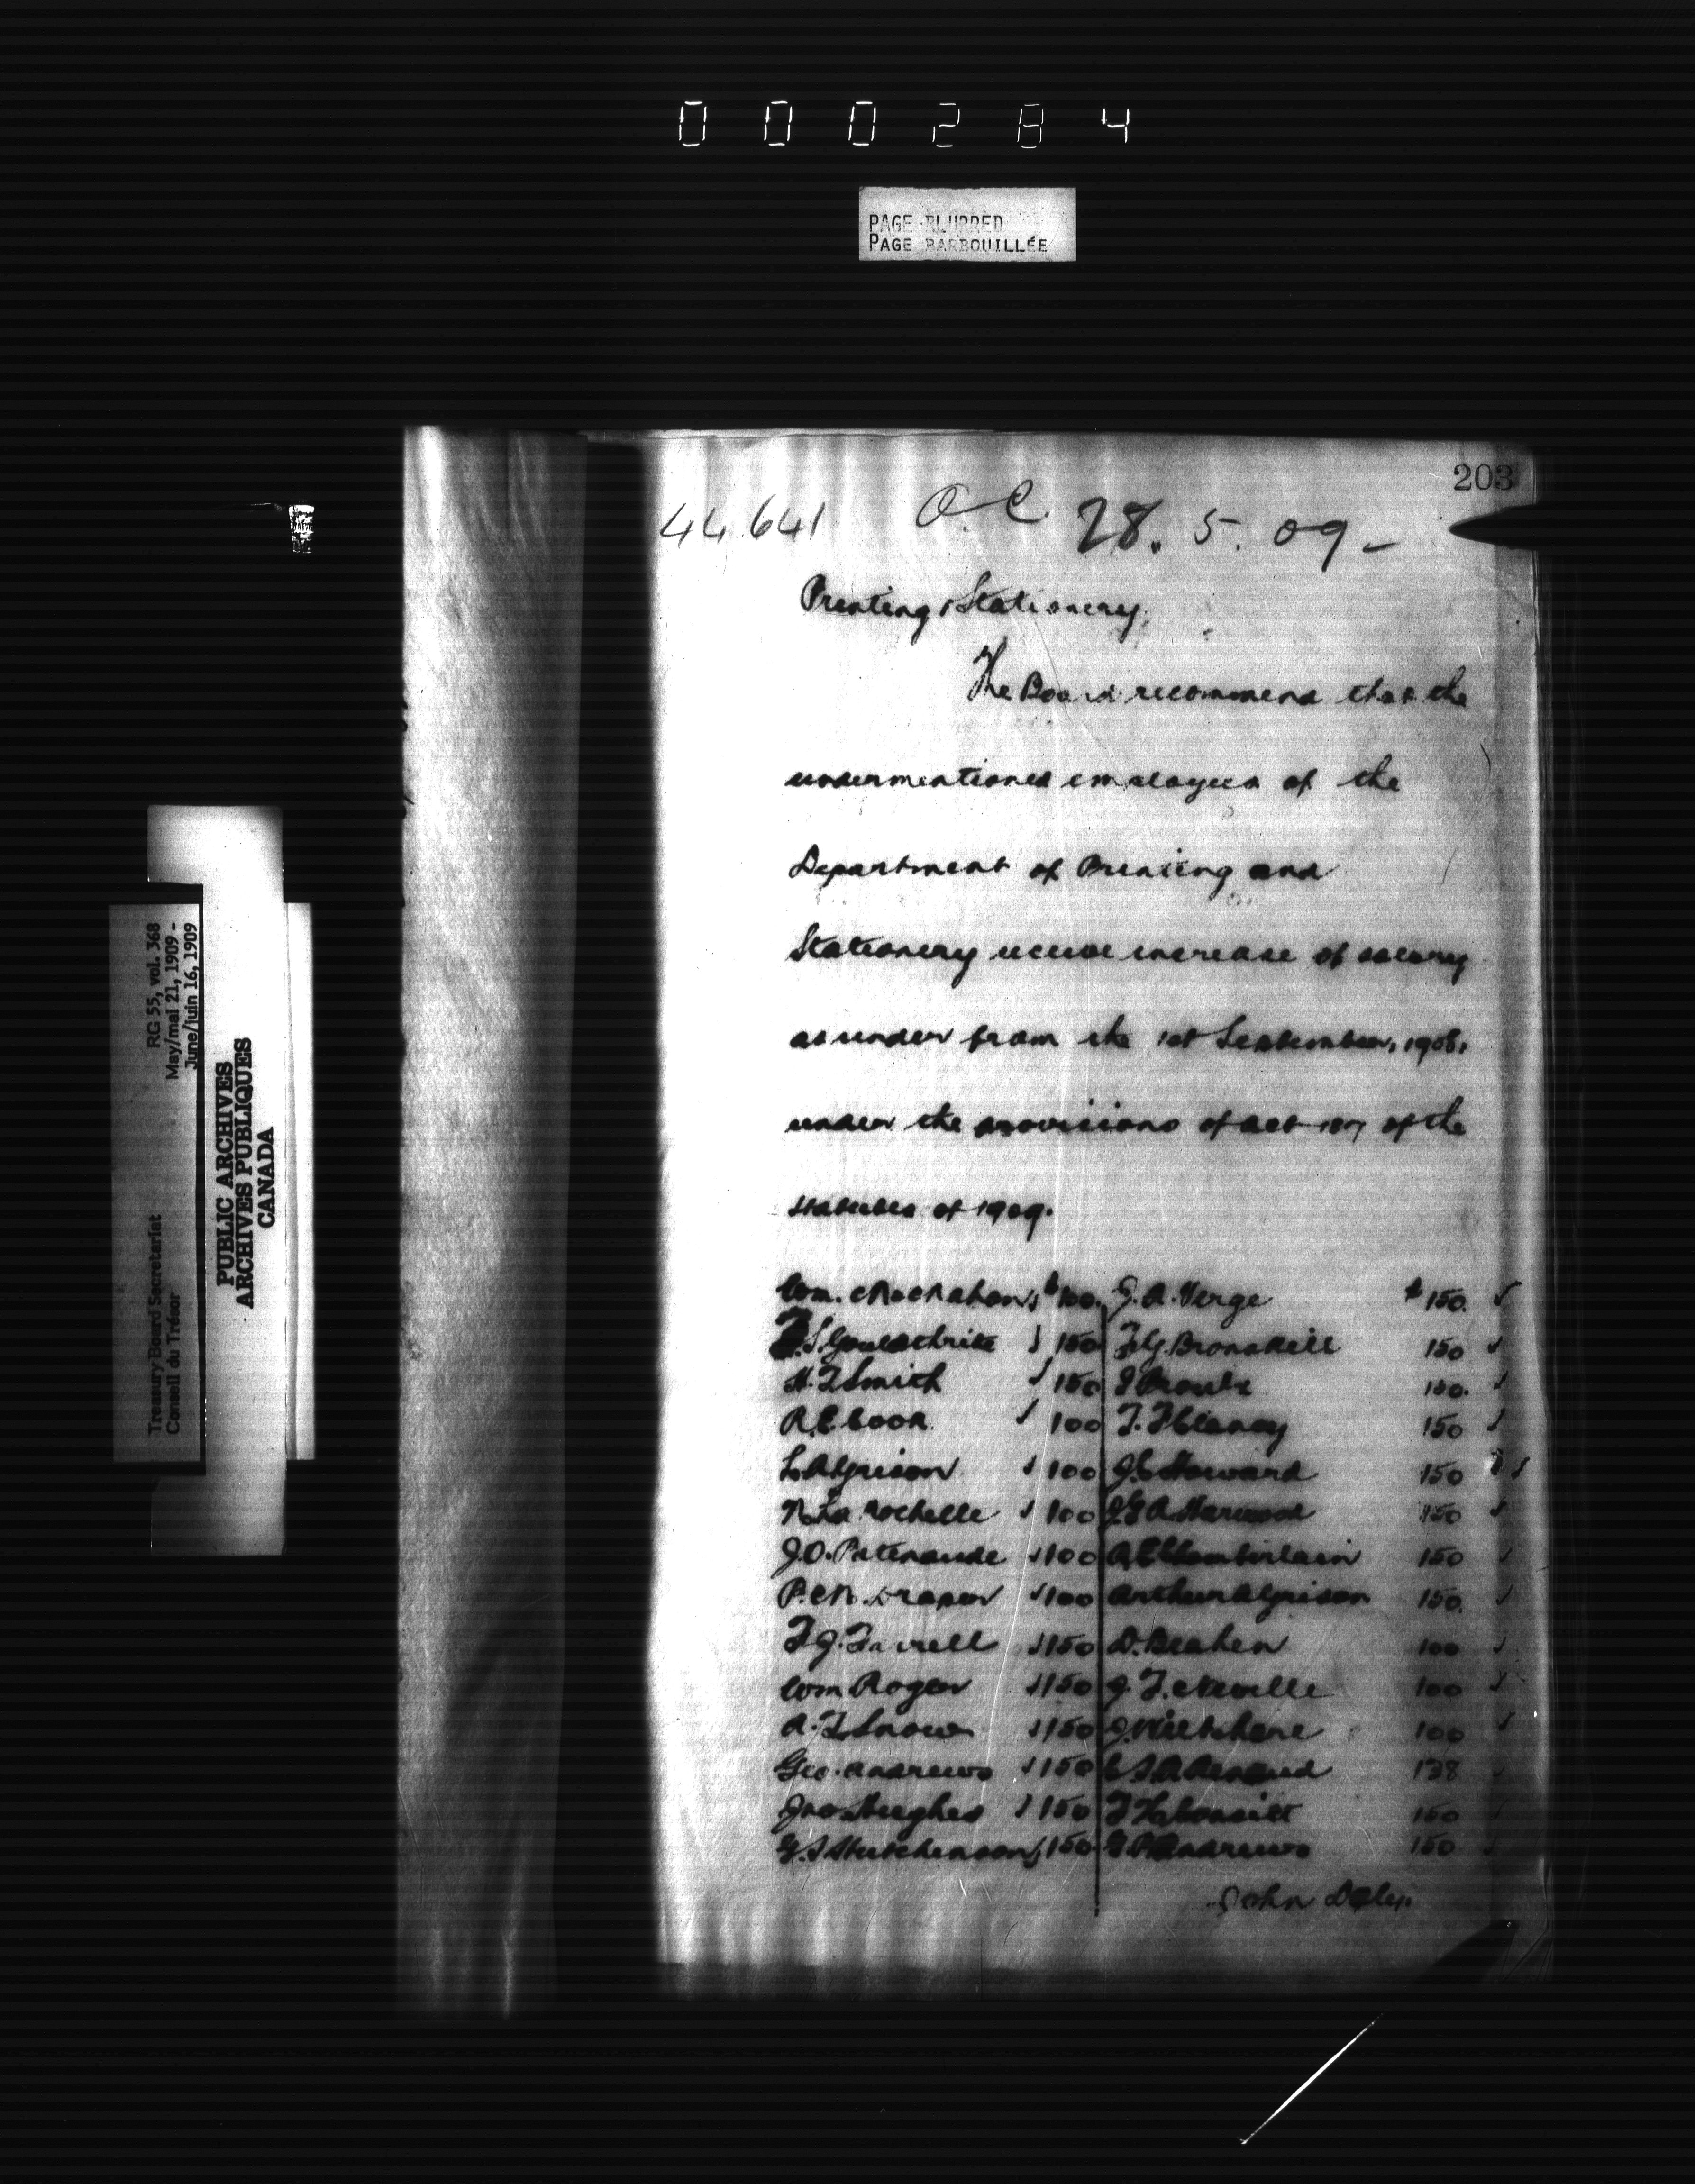 000284
PAGE BLURRED
PAGE BARBOUILLÉE
203
44641 O.C. 28.5.09-
Printing & Stationery.
The Board recommend that the
undermentioned employees of the
Department of Printing and
Stationery receive increase of salary
as under from the 1st September, 1908,
under the provisions of act of the
statutes of 1909.
Wm. McMahon, $100. J.A. Verge $150. ✓
F.S. Gouldthrite ✓ 150 F.G. Bronskill 150 ✓
H.F. Smith ✓ 150 J. Proulx 150. ✓
R.E. Cook ✓ 100 T.F. Clancy 150 ✓
L.A. Grison ✓ 100 J.C. Howard 150 ✓
N. La Rochelle ✓ 100 J.G.A. Harwood 150 ✓
J.O. Patenaude ✓ 100 A.E. Chamberlain 150 ✓
P.M. Draper ✓ 100 Arthur A. Grison 150. ✓
F.J. Farrell ✓ 150 D. Beahen 100 ✓
Wm Roger ✓ 150 J.F. Neville 100 ✓
A.F. Snow ✓ 150 J. Wiltshire 100 ✓
Geo. Andrews ✓ 150 Renaud 138 ✓
Jno. Hughes ✓ 150 150 ✓
G.S. Hutchinson, 150. Andrews 150 ✓
John Daly.
Treasury Board Secretariat RG 55, vol. 368
Conseil du Trésor May/mai 21, 1909 -
June/juin 16, 1909
PUBLIC ARCHIVES
ARCHIVES PUBLIQUES
CANADA